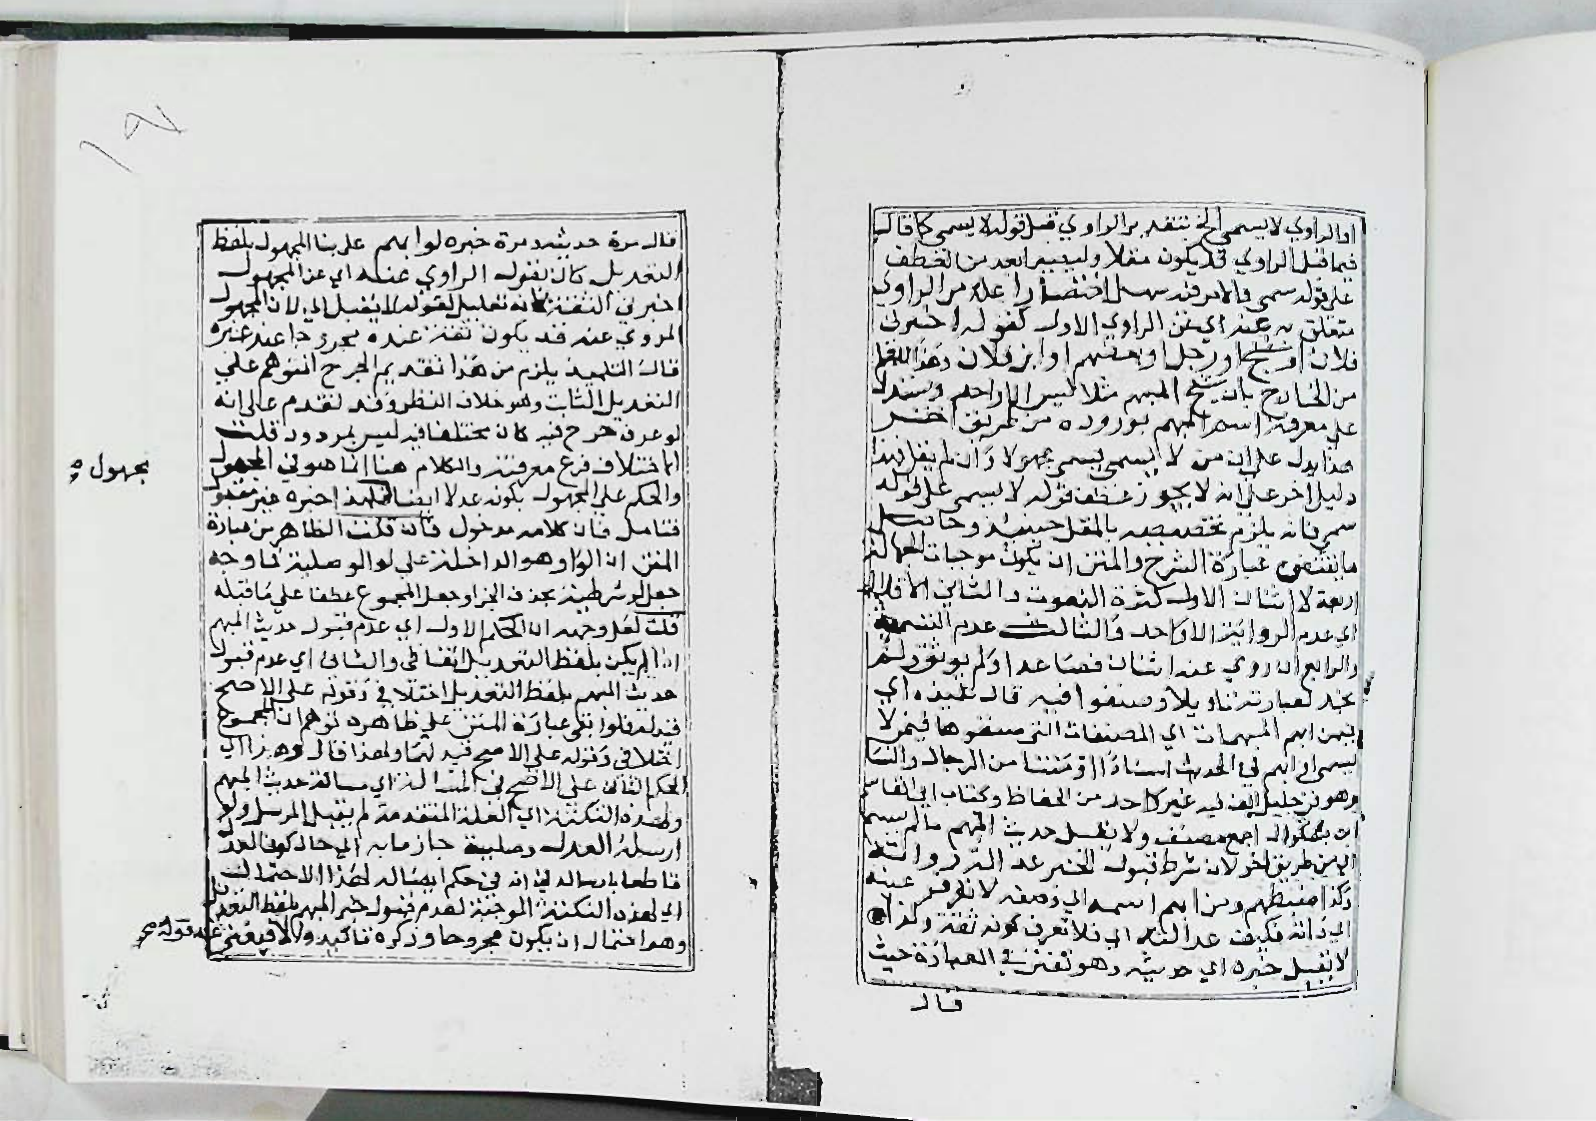 او الراوي لا يسمى الخ بتقدير الراوي قبل قوله لا يسمى كما قال
فيما قبل الراوي قد يكون مقلا وليبين ابعد من العطف
على قوله سمى فالامر فيه سهل اختصارا علة من الراوي
متعلق به عنه اي عن الراوي الاول كقوله اخبرني
فلان او شيخ او رجل او بعضهم او ابن فلان وهذا اللفظ
من الخارج بان شيخ المبهم مثلا ليس الا واحد ويستدل
على معرفة اسم المبهم بوروده من طريق اخر
هذا يدل على ان من لا يسمى يسمى مجهولا وان لم يقل فهذا
دليل اخر على انه لا يجوز عطف قوله لا يسمى على قوله
سمى فانه يلزم تخصيصه بالمقل حينئذ وحاصل
ما يقتضي عبارة الشرح والمتن ان يكون موجبات الجهالة
اربعة لا اثنان الاول كثرة النعوت والثاني الاقلال
اي عدم الرواية الا واحد والثالث عدم التسمية
والرابع ان روي عنه اثنان فصاعدا ولم يوثق ولم
نجد لعبارته تاويلا وصنفوا فيه قال تلميذه اي
فيمن ابهم المبهمات اي المصنفات التي صنفوها فيمن لا
يسمى او ابهم في الحديث اسنادا او متنا من الرجال والنساء
وهو نوع جليل الف فيه غير واحد من الحفاظ وكتاب ابي القاسم
ابن بشكوال اجمع مصنف ولا يقبل حديث المبهم ما لم يسم
اي من طريق اخر لان شرط قبول الخبر عدالة رواته
وكذا ضبطهم ومن ابهم اسمه اي وصفه لا تعرف عينه
اي ذاته فكيف عدالته اي فلا تعرف كونه ثقة وكذا
لا يقبل خبره اي حديثه وهو تفنن في العبارة حيث
قال
قال مرة حديثه ومرة خبره لو ابهم على بنا المجهول بلفظ
التعديل كان يقول الراوي عنه اي عن المجهول
اخبرني الثقة لانه تعليل لقوله لا يقبل اي لان المجهول
المروي عنه قد يكون ثقة عنده مجروحا عند غيره
قال التلميذ يلزم من هذا تقديم الجرح المتوهم على
التعديل الثابت وهو خلاف النظر وقد تقدم على انه
لو عرف جرح فيه كان مختلفا فيه ليس بمردود قلت
الاختلاف فرع معرفته والكلام هنا انما هو في المجهول
والحكم على المجهول بكونه عدلا ايضا فلهذا خبره غير مقبول
فتامل فان كلامه مدخول فان قلت الظاهر من عبارة
المتن ان الواو هو الداخلة على لو الوصلية فما وجه
جعل لو شرطية بحذف الجزا وجعل المجموع عطفا على ما قبله
قلت لعل وجهه ان الحكم الاول اي عدم قبول حديث المبهم
اذا لم يكن بلفظ التعديل اتفاقي والثاني اي عدم قبول
حديث المبهم بلفظ التعديل اختلافي وقوله على الاصح
قيد له فلو ابقى عبارة المتن على ظاهره توهم ان المجموع
اختلافي وقوله على الاصح قيد لهما ولهذا قال وهذا اي
الحكم الثاني على الاصح في المسألة اي مسالة حديث المبهم
ولهذه النكتة اي العلة المتقدمة لم يقبل المرسل ولو
ارسله العدل وصلية جازما به اي حال كون العدل
قاطعا بارساله في انه في حكم ايصاله لهذا الاحتمال
اي لهذه النكتة الموجبة لعدم قبول خبر المبهم بلفظ التعديل
وهو احتمال ان يكون مجروحا وذكره تاكيد والا فيغني
مجهول
عنه قوله
١٩